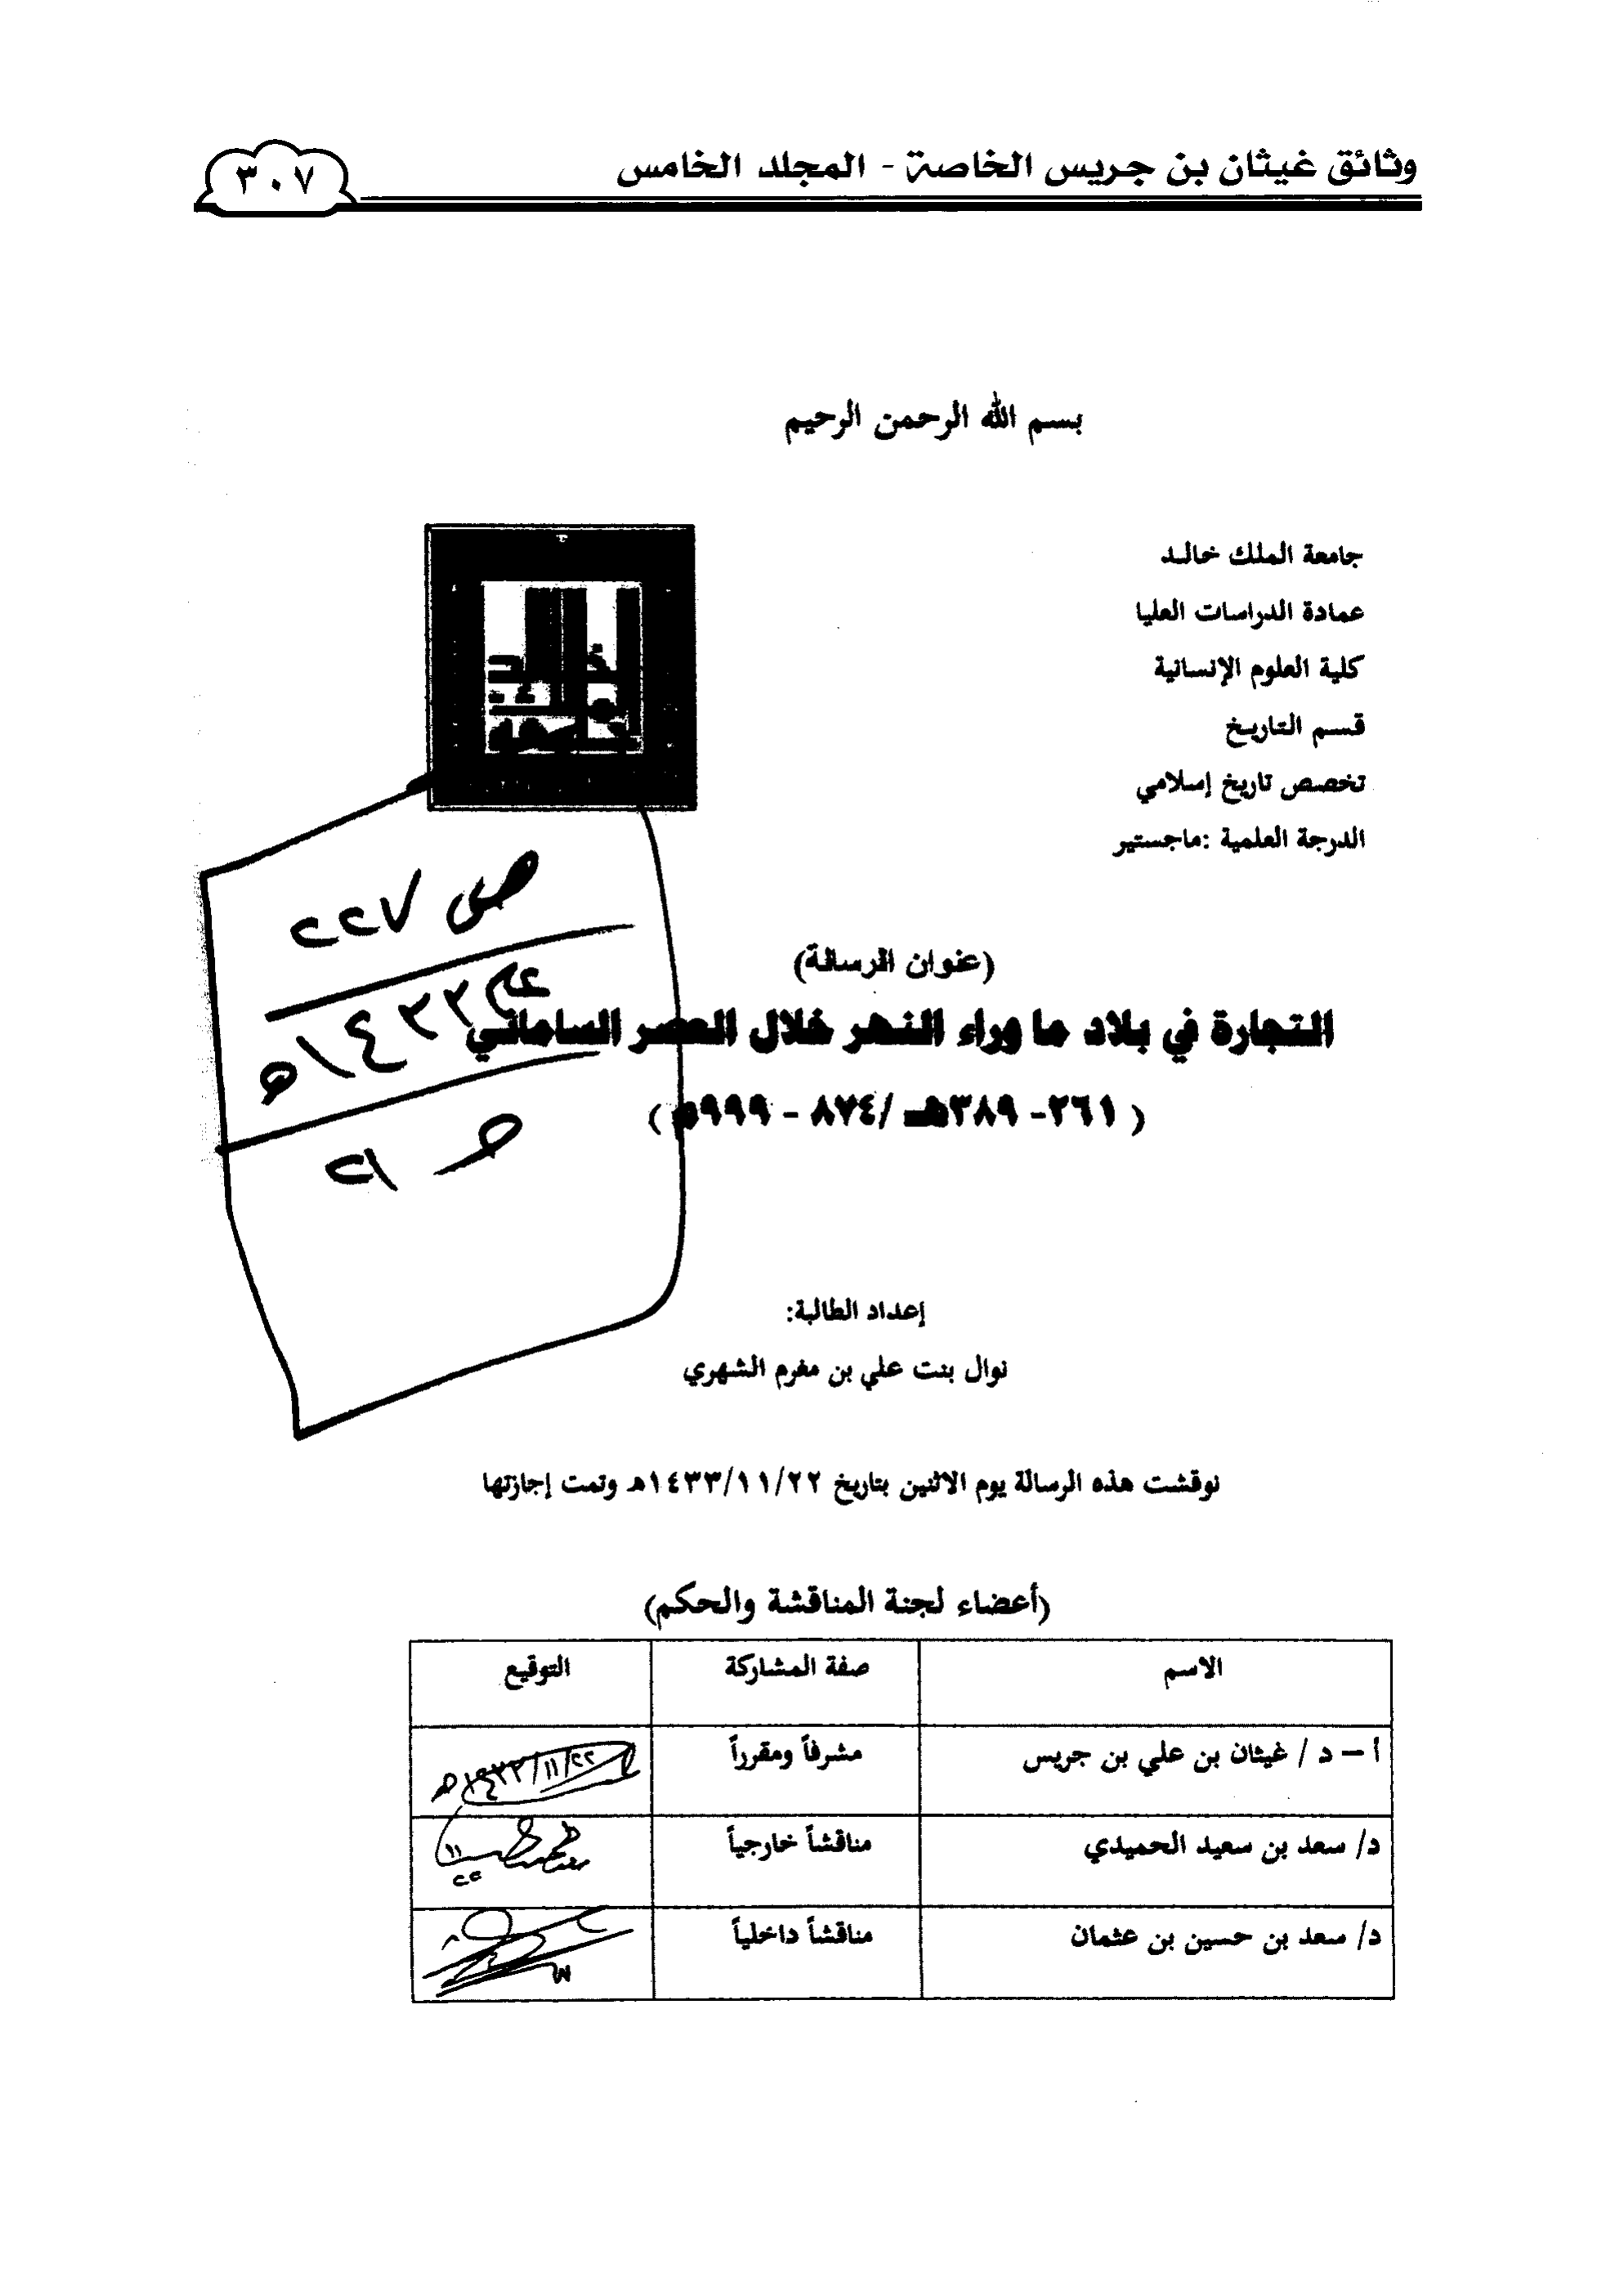 وثائق غيثان بن جريس الخاصة - المجلد الخامس
٣٠٧
بسم الله الرحمن الرحيم
جامعة الملك خالد
عمادة الدراسات العليا
كلية العلوم الإنسانية
قسم التاريخ
تخصص تاريخ إسلامي
الدرجة العلمية :ماجستير
ص ٢٢٧
١٤٣٣هـ
(عنوان الرسالة)
التجارة في بلاد ما وراء النهر خلال العصر الساماني
( ٢٦١- ٣٨٩هـ /٨٧٤ - ٩٩٩م )
إعداد الطالبة:
نوال بنت علي بن مغرم الشهري
نوقشت هذه الرسالة يوم الاثنين بتاريخ ١٤٣٣/١١/٢٢هـ وتمت إجازتها
(أعضاء لجنة المناقشة والحكم)
الاسم صفة المشاركة التوقيع
أ – د / غيثان بن علي بن جريس مشرفاً ومقرراً ١٤٣٣/١١/٢٢هـ
د/ سعد بن سعيد الحميدي مناقشاً خارجياً
د/ سعد بن حسين بن عثمان مناقشاً داخلياً